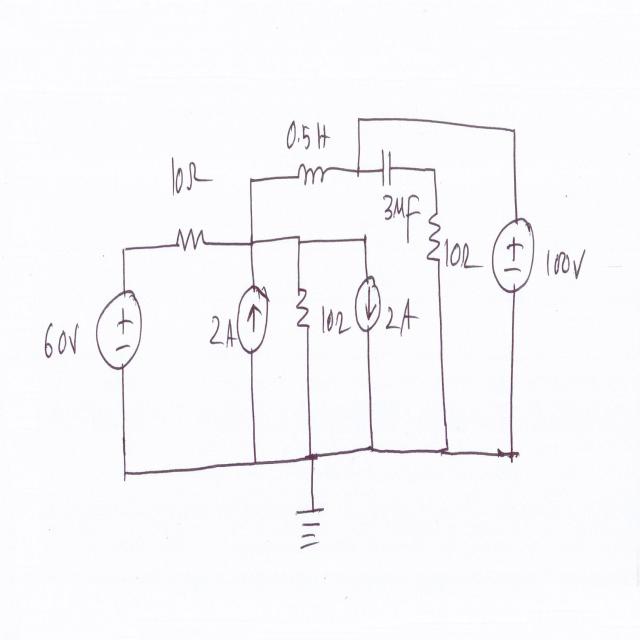 0.5H
10Ω
3Mf
10Ω
100V
60V
2A
10Ω
2A